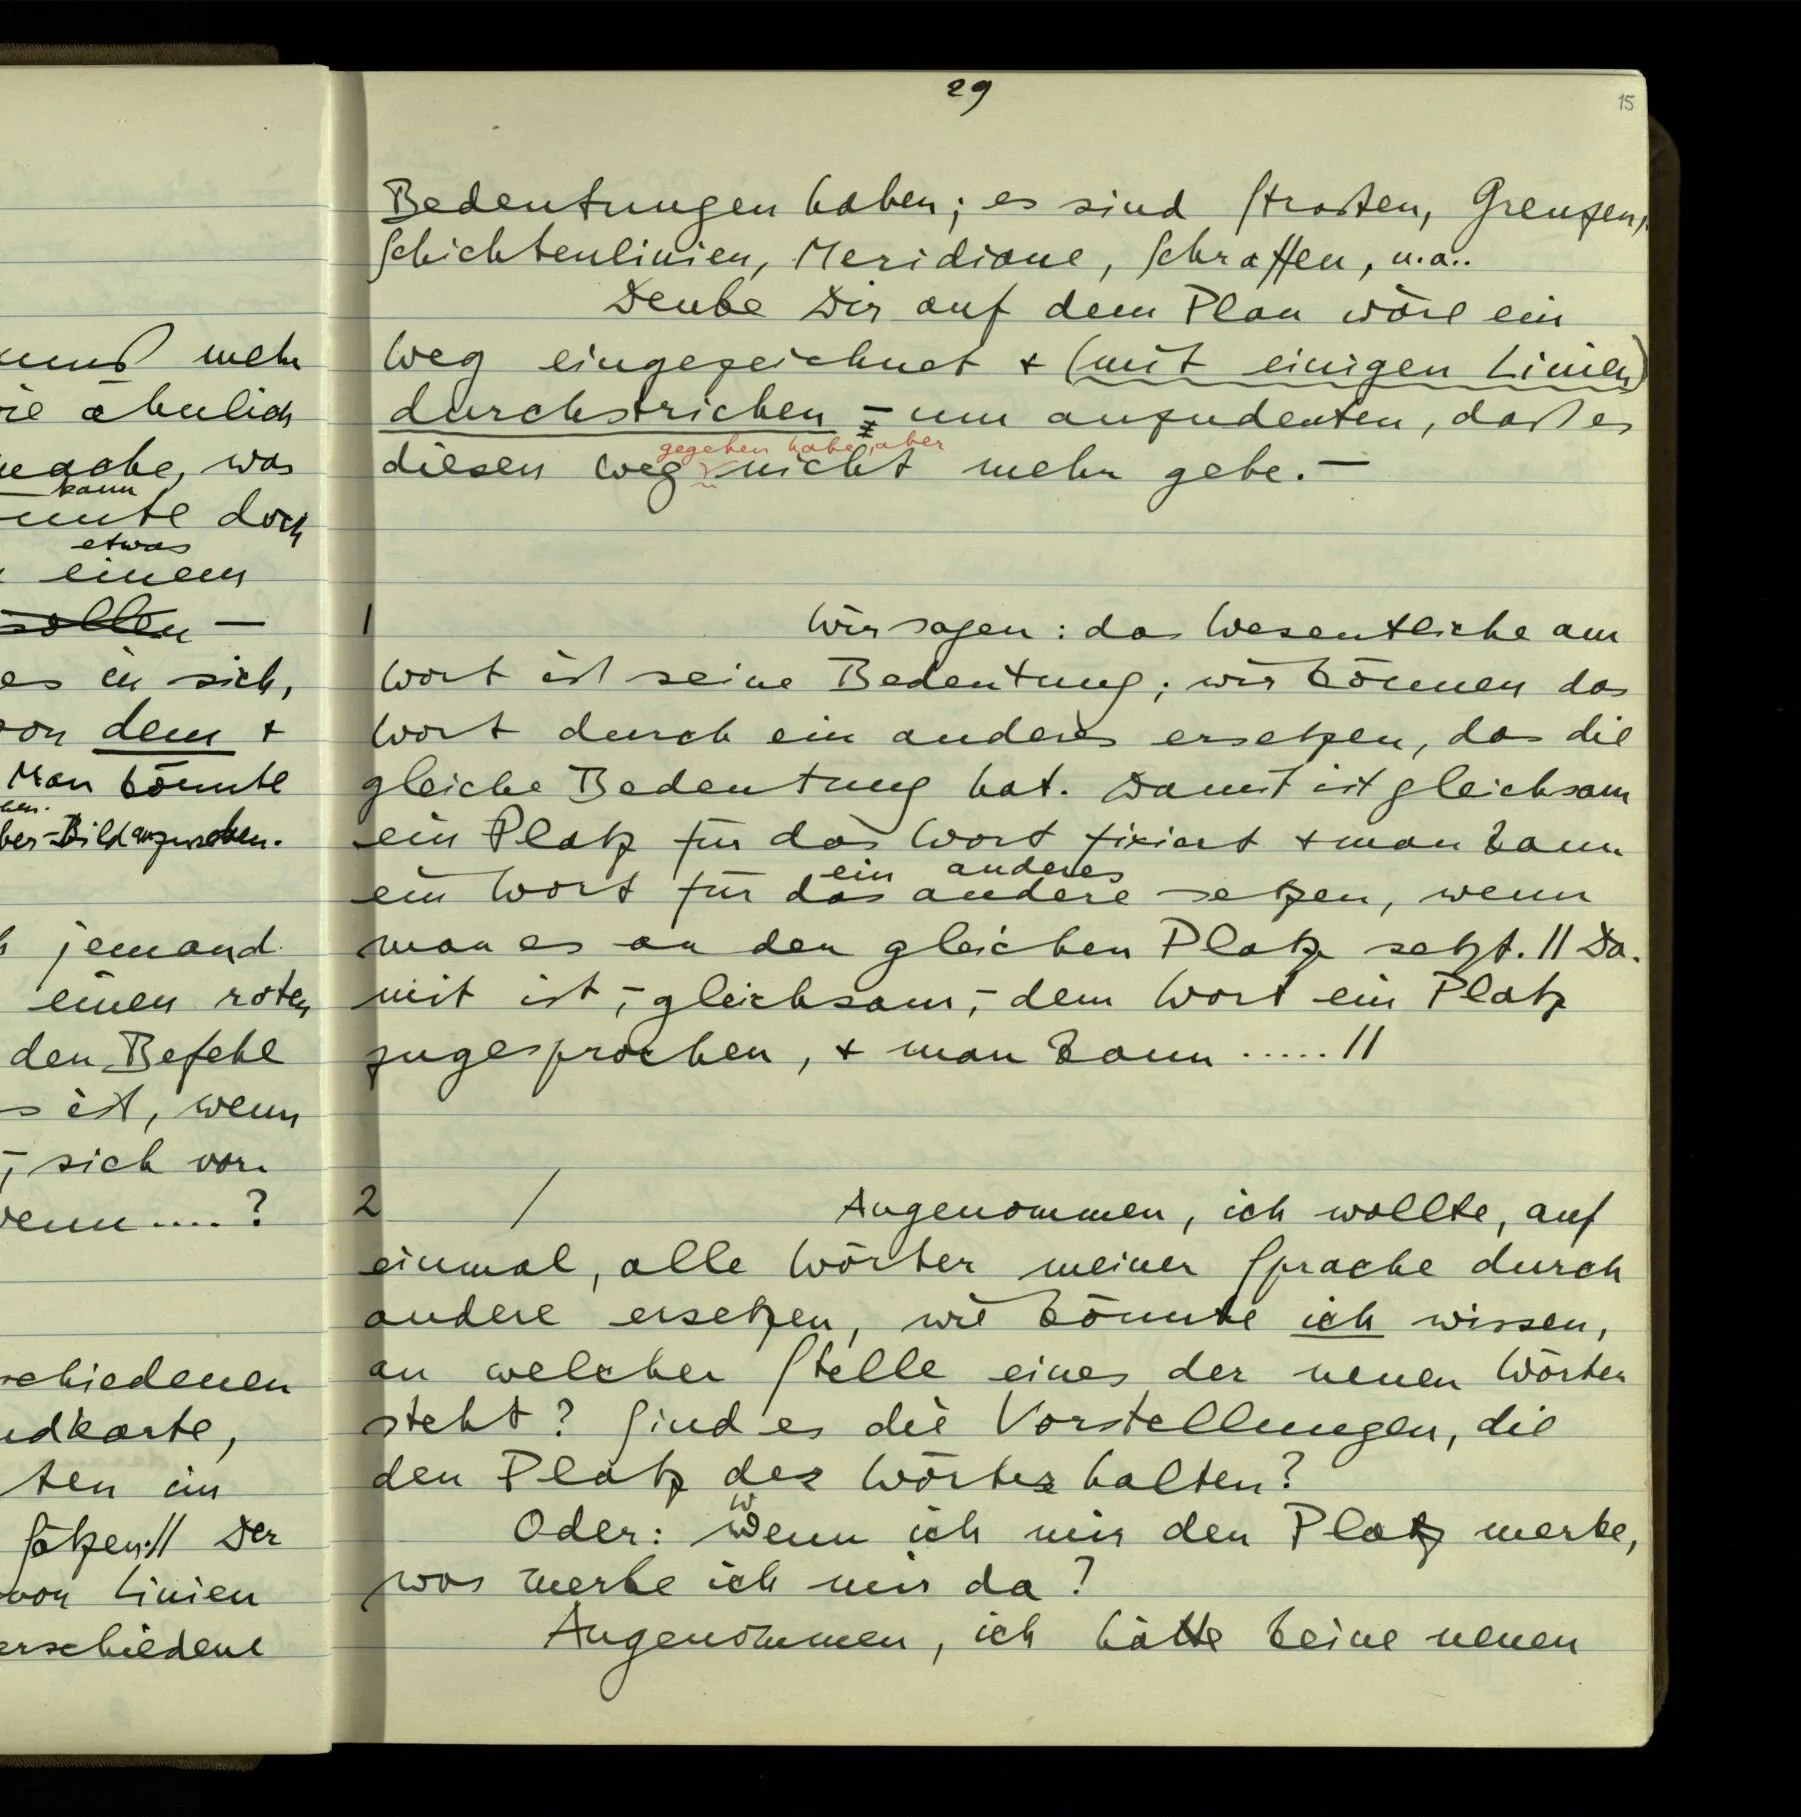 29
15
mehr
ähnlich
was
kann
doch
etwas
einem
sollen —
es in sich,
dem +
Man könnte
jemand
einen roten
den Befehl
ist, wenn
sich vor-
wenn .... ?
schiedenen
dkarte,
ten im
Sätzen.// Der
von Linien
erschiedene
Bedeutungen haben; es sind Straßen, Grenzen,
Schichtenlinien, Meridiane, Schraffen, u.a..
Denke Dir auf dem Plan wäre ein
Weg eingezeichnet + (mit einigen Linien)
durchstrichen – um anzudeuten, daß es
gegeben habe, aber
diesen Weg nicht mehr gebe. —
1 Wir sagen: das Wesentliche am
Wort ist seine Bedeutung; wir können das
Wort durch ein anderes ersetzen, das die
gleiche Bedeutung hat. Damit ist gleichsam
ein Platz für das Wort fixiert + man kann
ein anderes
ein Wort für das andere setzen, wenn
man es an den gleichen Platz setzt. // Da-
mit ist, – gleichsam, – dem Wort ein Platz
zugesprochen, + man kann ..... //
2 / Angenommen, ich wollte, auf
einmal, alle Wörter meiner Sprache durch
andere ersetzen, wie könnte ich wissen,
an welcher Stelle eines der neuen Wörter
steht? Sind es die Vorstellungen, die
den Platz des Wörter halten?
w
Oder: Wenn ich mir den Platz merke,
was merke ich mir da?
Angenommen, ich hätte keine neuen